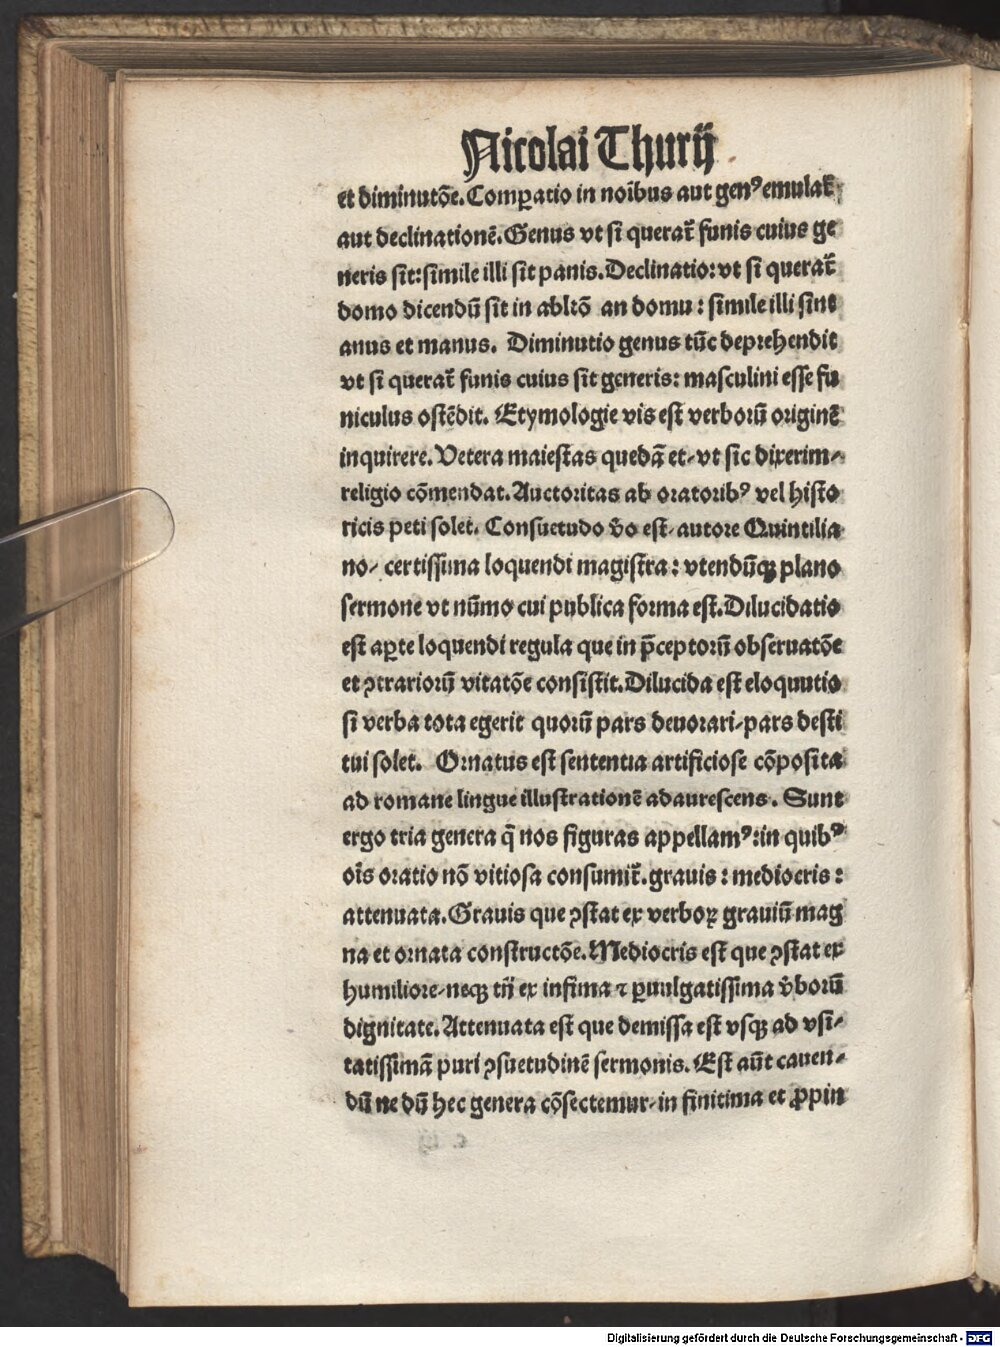 Nicolai Thurij
et diminutōe. Comꝑatio in noībus aut genꝰ emulat̄
aut declinationē. Genus vt si querat̄ funis cuius ge
neris sit: simile illi sit panis. Declinatio: vt si querat̄
domo dicendū sit in abltō an domu: simile illi sint
anus et manus. Diminutio genus tūc deprehendit
vt si querat̄ funis cuius sit generis: masculini esse fu
niculus ostēdit. Etymologie vis est verborū originē
inquirere. Vetera maiestas quedā et/ vt sic dixerim/
religio cōmendat. Auctoritas ab oratoribꝰ vel histo
ricis peti solet. Consuetudo v̄o est/ autore Quintilia
no/ certissima loquendi magistra: vtendūqꝫ plano
sermone vt nūmo cui publica forma est. Dilucidatio
est aꝑte loquendi regula que in p̄ceptorū obseruatōe
et ꝯtrariorū vitatōe consistit. Dilucida est eloquutio
si verba tota egerit quorū pars deuorari/ pars desti
tui solet. Ornatus est sententia artificiose cōposita
ad romane lingue illustrationē adaurescens. Sunt
ergo tria genera q̄ nos figuras appellamꝰ: in quibꝰ
oīs oratio nō vitiosa consumit̄. grauis: mediocris:
attenuata. Grauis que ꝯstat ex verboꝝ grauiū mag
na et ornata constructōe. Mediocris est que ꝯstat ex
humiliore/ neqꝫ tn̄ ex infima ⁊ ꝑuulgatissima v̄borū
dignitate. Attenuata est que demissa est vsqꝫ ad vsi/
tatissimā puri ꝯsuetudinē sermonis. Est aūt cauen/
dū ne dū hec genera cōsectemur/ in finitima et ꝓpin
Digitalisierung gefördert durch die Deutsche Forschungsgemeinschaft - DFG